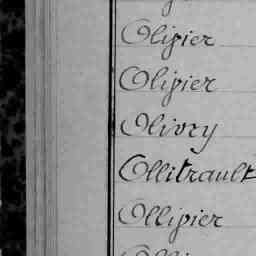 Olivier
Olivier
Olivry
Ollitrault
Ollivier